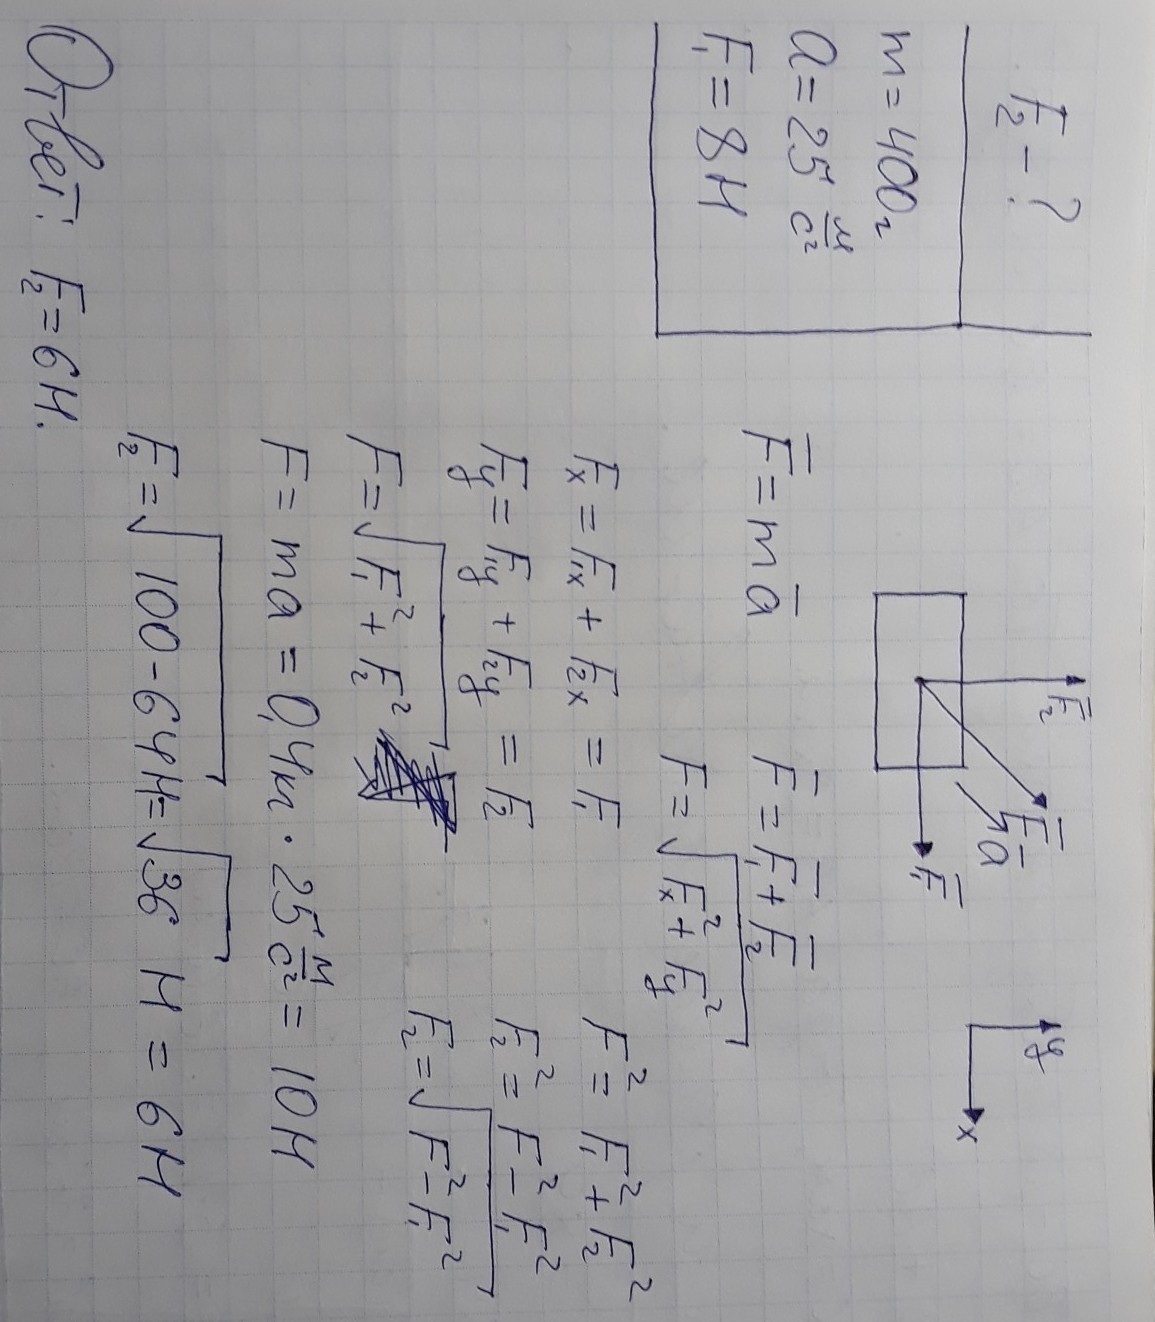 F₂ - ?
m = 400г
a = 25 м/с²
F₁ = 8Н
F̄₂
F̄
ā
F̄₁
y
x
F̄ = mā
F̄ = F̄₁ + F̄₂
F = √(Fx² + Fy²)
Fx = F₁x + F₂x = F₁
Fy = F₁y + F₂y = F₂
F = √(F₁² + F₂²)
F² = F₁² + F₂²
F₂² = F² - F₁²
F₂ = √(F² - F₁²)
F = ma = 0,4кг · 25 м/с² = 10Н
F₂ = √(100 - 64) Н = √36 Н = 6Н
Ответ: F₂ = 6Н.